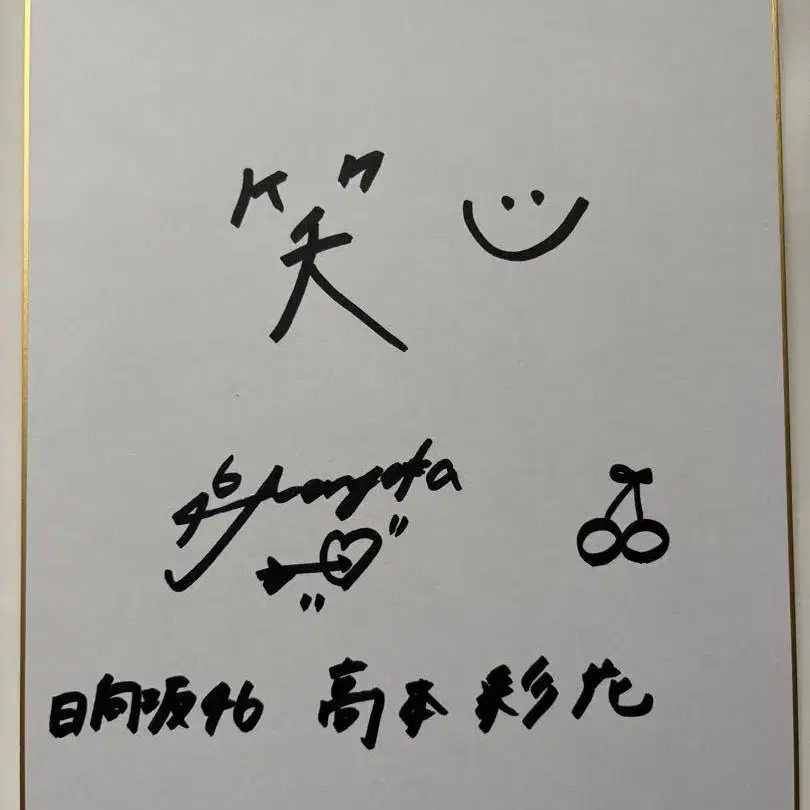 笑
46
日向坂46 高本彩花